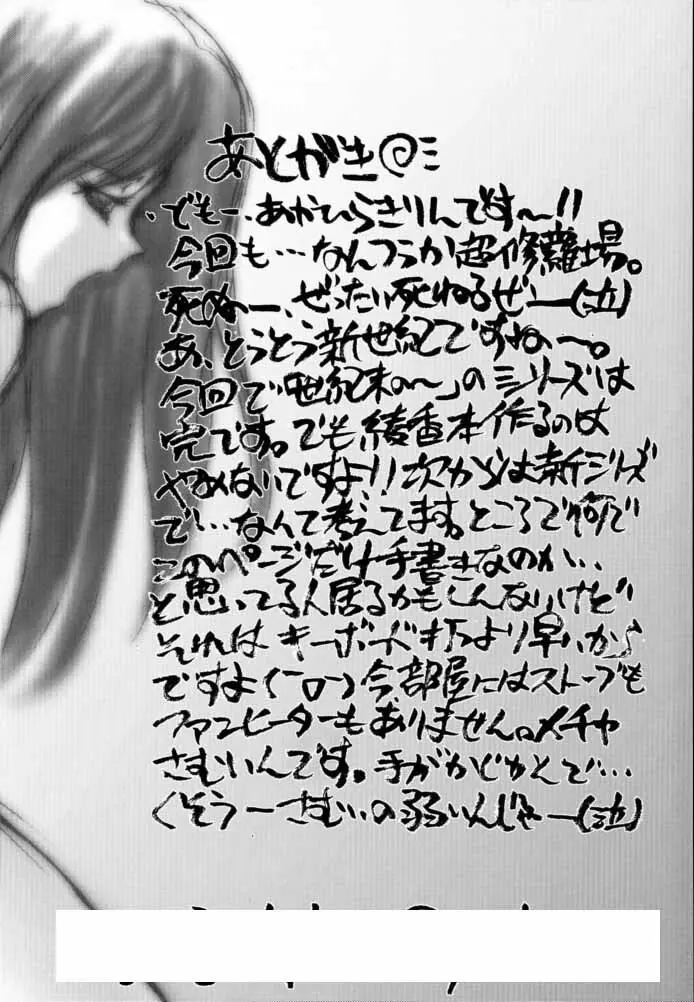 あとがき@ミ
、でもー、あかひらきりんです〜!!
今回も…なんつうか超修羅場。
死ぬー、ぜったい死ねるぜー(泣)
あ、とうとう新世紀ですねー。
今回で「世紀末の〜」のシリーズは
完です。でも綾香本作るのは
やめないですよ!!次からは新シリーズ
で…なんて考えてます。ところで何で
このページだけ手書きなのか…
と思いてる人居るかもしんないけど
それはキーボード打つより早いから
ですよ(-o-)今部屋にはストーブも
ファンヒーターもありません。メチャ
さむいんです。手がかじかんで…
くそうーさむいの弱いんじゃー(泣)